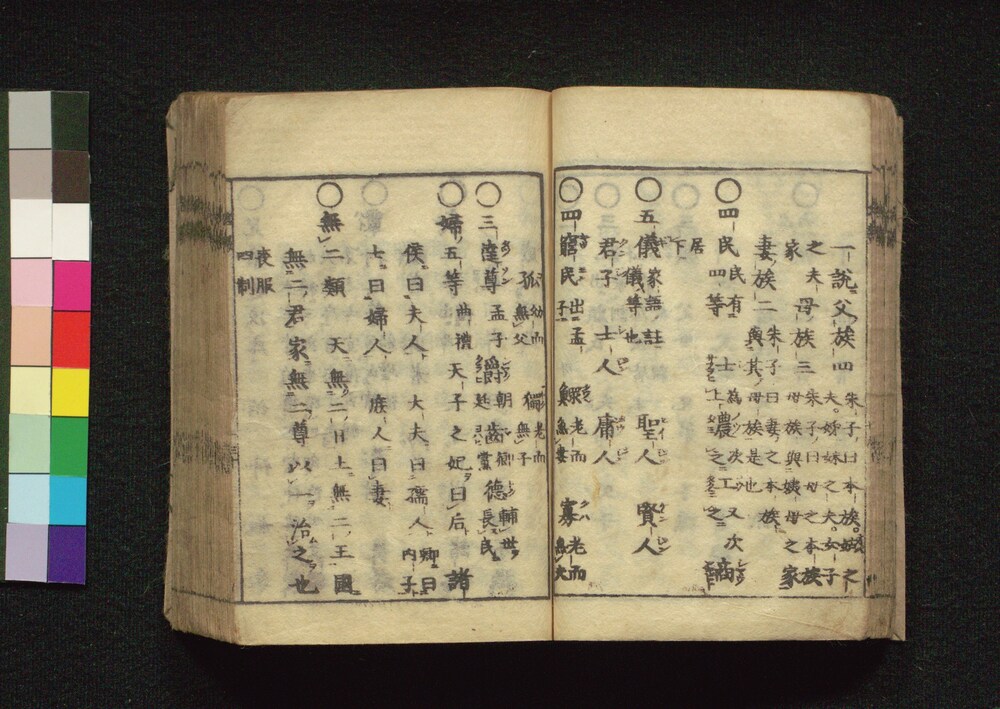 一説父族四 朱子曰本族。姑之
夫。姊妹之夫。女子
之夫 母族三 朱子曰母之本族
母族與姨母之家
家 妻族二 朱子曰妻之本族
與其母族是也
○四民 民有
四等 士 農 工 商
居
下
○五儀 家語註
儀等也 聖人 賢人
君子 士人 庸人
○四窮民 出孟
子 鰥 老而
無妻 寡 老而
無夫
孤 幼而
無父 獨 老而
無子
○三達尊 孟子 爵 朝
廷 齒 鄉
黨 德 輔世
長民
○婦五等 曲禮 天子之妃曰后 諸
侯曰夫人 大夫曰孺人 卿曰
內子
士曰婦人 庶人曰妻
○無二類 天無二日 土無二王 國
無二君 家無二尊 以一治之也
喪服
四制